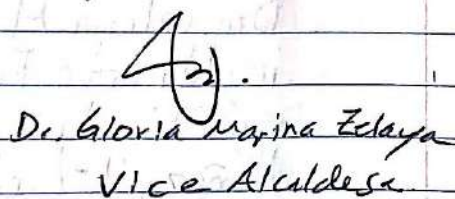 Dr. Gloria Marina Zelaya
Vice Alcaldesa